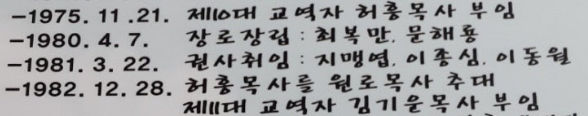 -1975. 11.21. 제10대 교역자 허흥목사 부임
-1980. 4. 7. 장로장립 : 최복만, 문해룡
-1981. 3. 22. 권사취임 : 지맹엽, 이종심, 이동월
-1982. 12. 28. 허흥목사를 원로목사 추대
제11대 교역자 김기운목사 부임